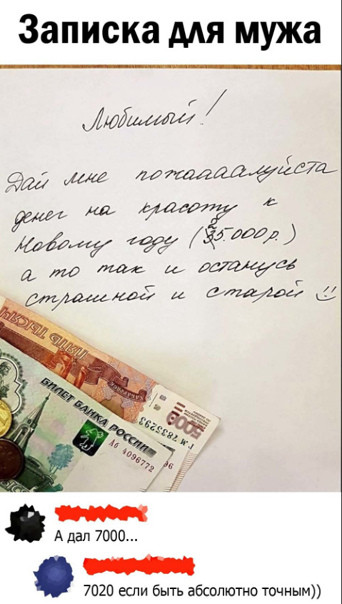 Записка для мужа
Любимый!
Дай мне пожааааалуйста
денег на красоту к
Новому году (35.000р.)
а то так и останусь
страшной и старой
ПЯТЬ ТЫСЯЧ
БИЛЕТ БАНКА РОССИИ
Аб 4096772
5000
А дал 7000...
7020 если быть абсолютно точным))